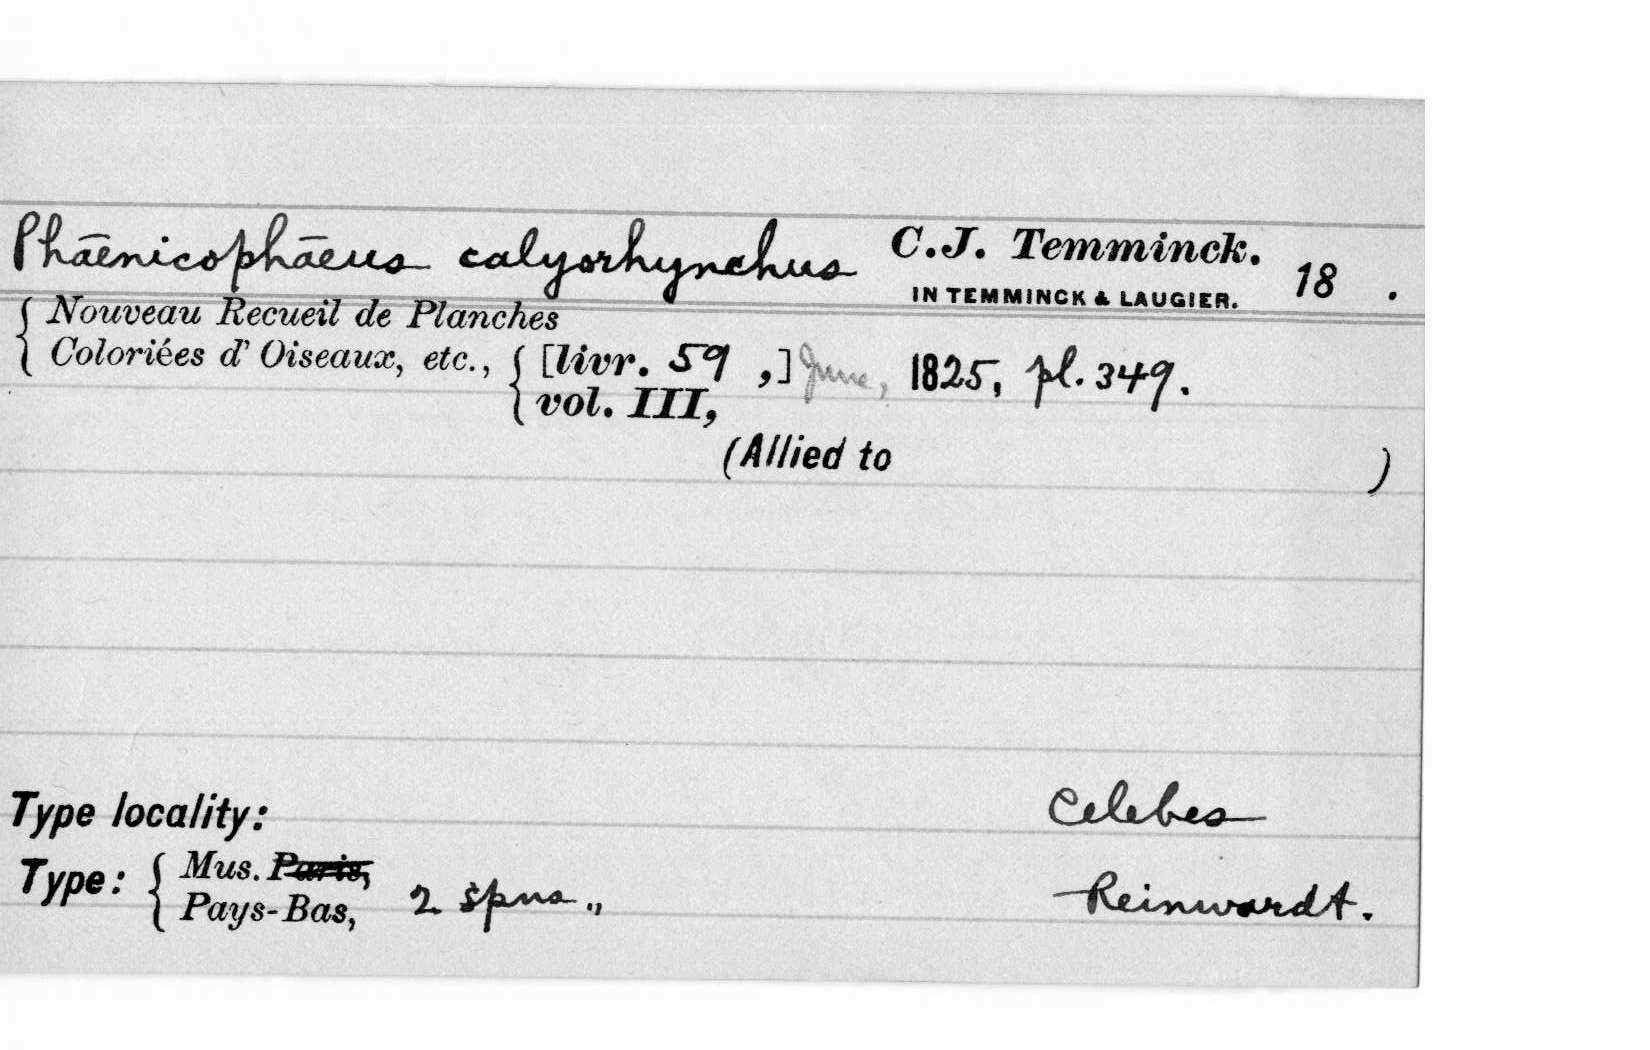 Phāēnicophāēus calyorhynchus C.J. Temminck. 18 .
IN TEMMINCK & LAUGIER.
Nouveau Recueil de Planches
Coloriées d' Oiseaux, etc., [livr. 59 ,] June, 1825, pl. 349.
vol. III,
(Allied to )
Type locality: Celebes
Type: Mus. Paris,
Pays-Bas, 2 spns., Reinwardt.